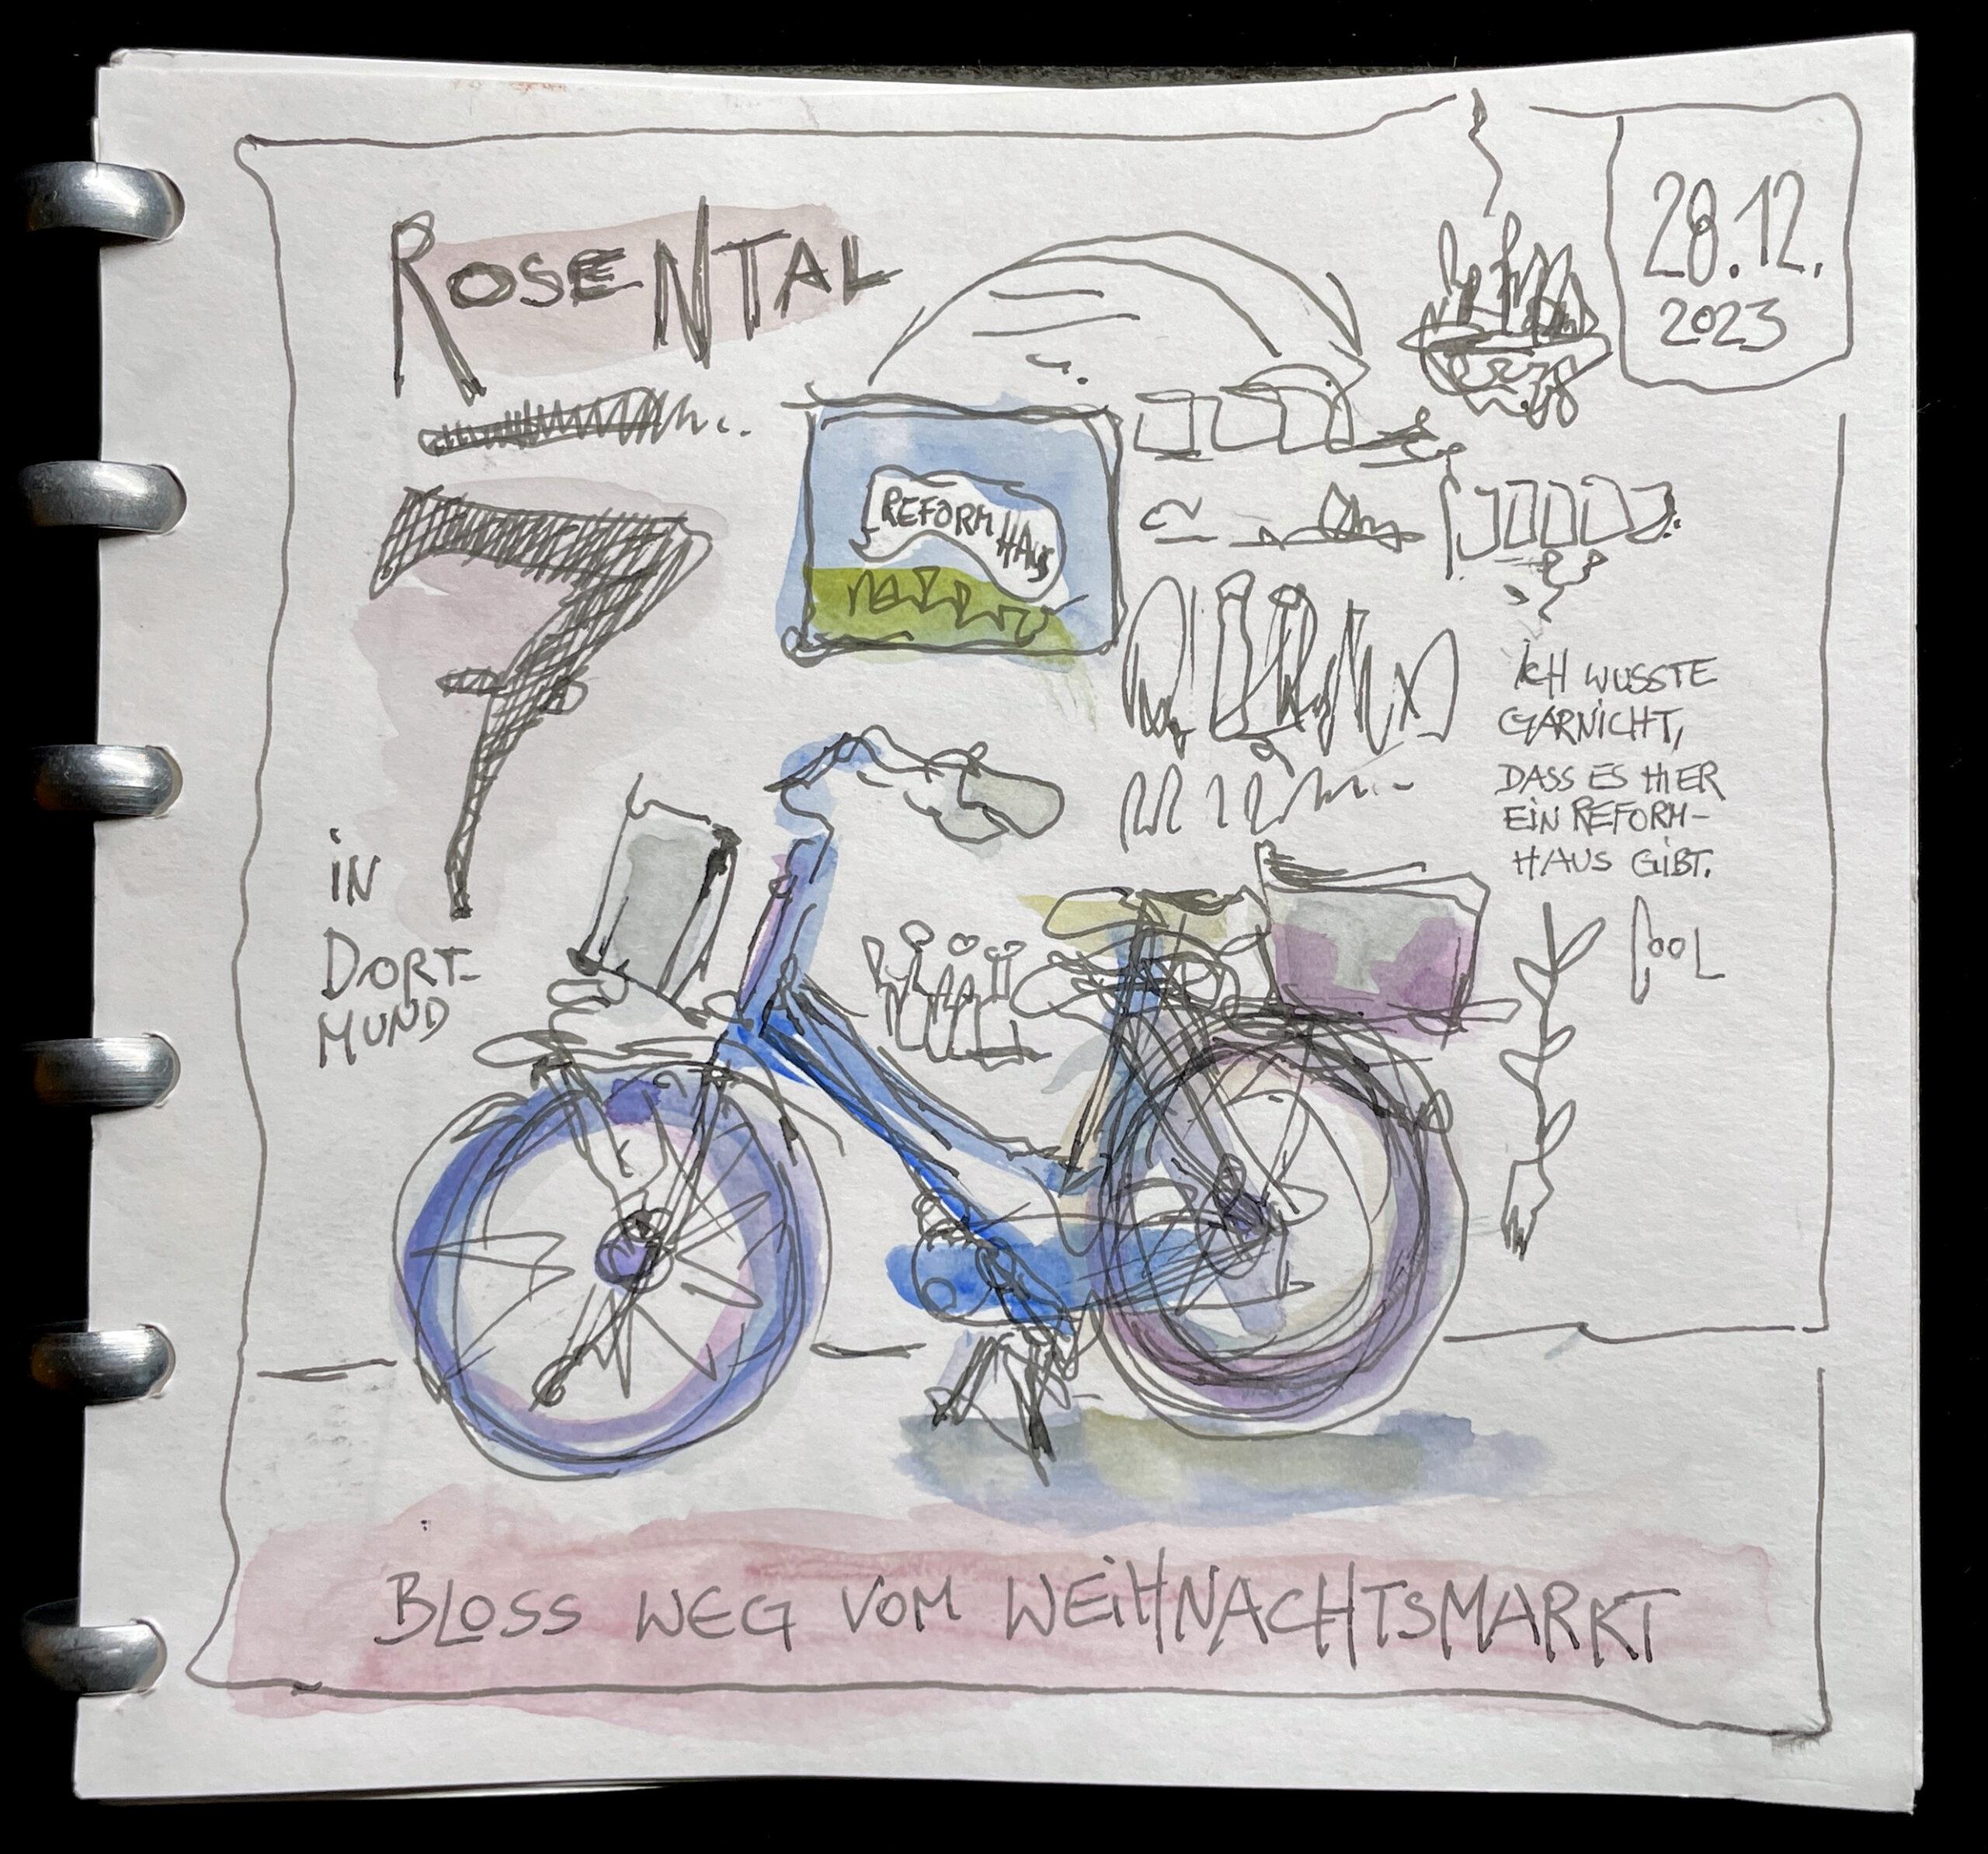 ROSENTAL
7
28.12.
2023
REFORMHAUS
iCH WUSSTE
GARNICHT,
DASS ES HIER
EIN REFORM-
HAUS GIBT.
COOL
iN
DORT-
MUND
BLOSS WEG VOM WEiHNACHTSMARKT